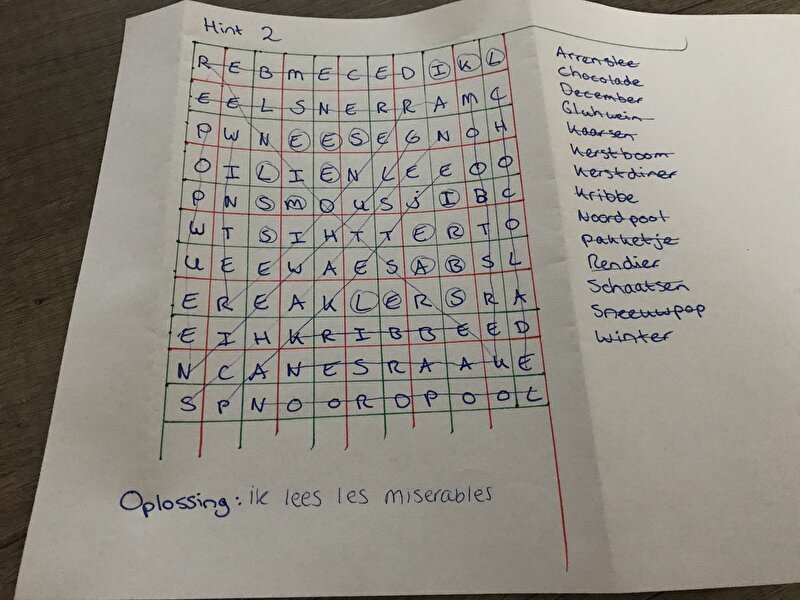 Hint 2
R E B M E C E D I K L
E E L S N E R R A M C
P W N E E S E G N O H
O I L I E N L E E O O
P N S M O U S J I B C
W T S I H T T E R T O
U E E W A E S A B S L
E R E A K L E R S R A
E I H K R I B B E E D
N C A N E S R A A K E
S P N O O R D P O O L
Oplossing: ik lees les miserables
Arrenslee
Chocolade
December
Gluhwein
Kaarsen
Kerstboom
Kerstdiner
Kribbe
Noordpool
pakketje
Rendier
Schaatsen
Sneeuwpop
Winter